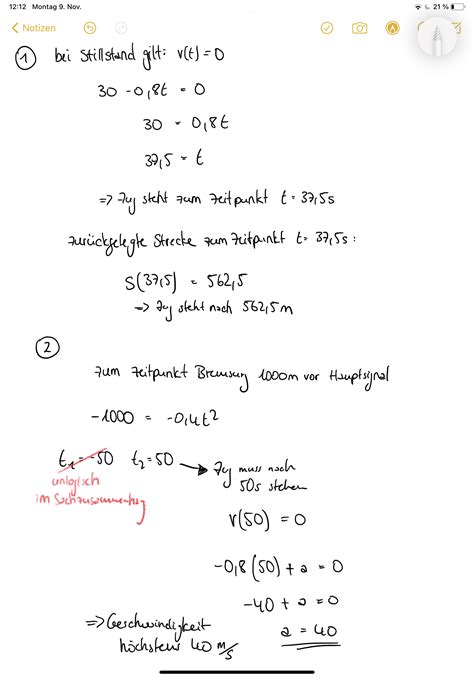 12:12 Montag 9. Nov. 21 %
Notizen
1 bei Stillstand gilt: v(t) = 0
30 - 0,8t = 0
30 = 0,8t
37,5 = t
=> Zug steht zum Zeitpunkt t = 37,5s
zurückgelegte Strecke zum Zeitpunkt t = 37,5s:
S(37,5) = 562,5
-> Zug steht nach 562,5 m
2
zum Zeitpunkt Bremsung 1000m vor Hauptsignal
-1000 = -0,4t²
t₁ = -50 t₂ = 50 → Zug muss nach
unlogisch 50s stehen
im Sachzusammenhang
v(50) = 0
-0,8(50) + a = 0
-40 + a = 0
=> Geschwindigkeit a = 40
höchstens 40 m/s